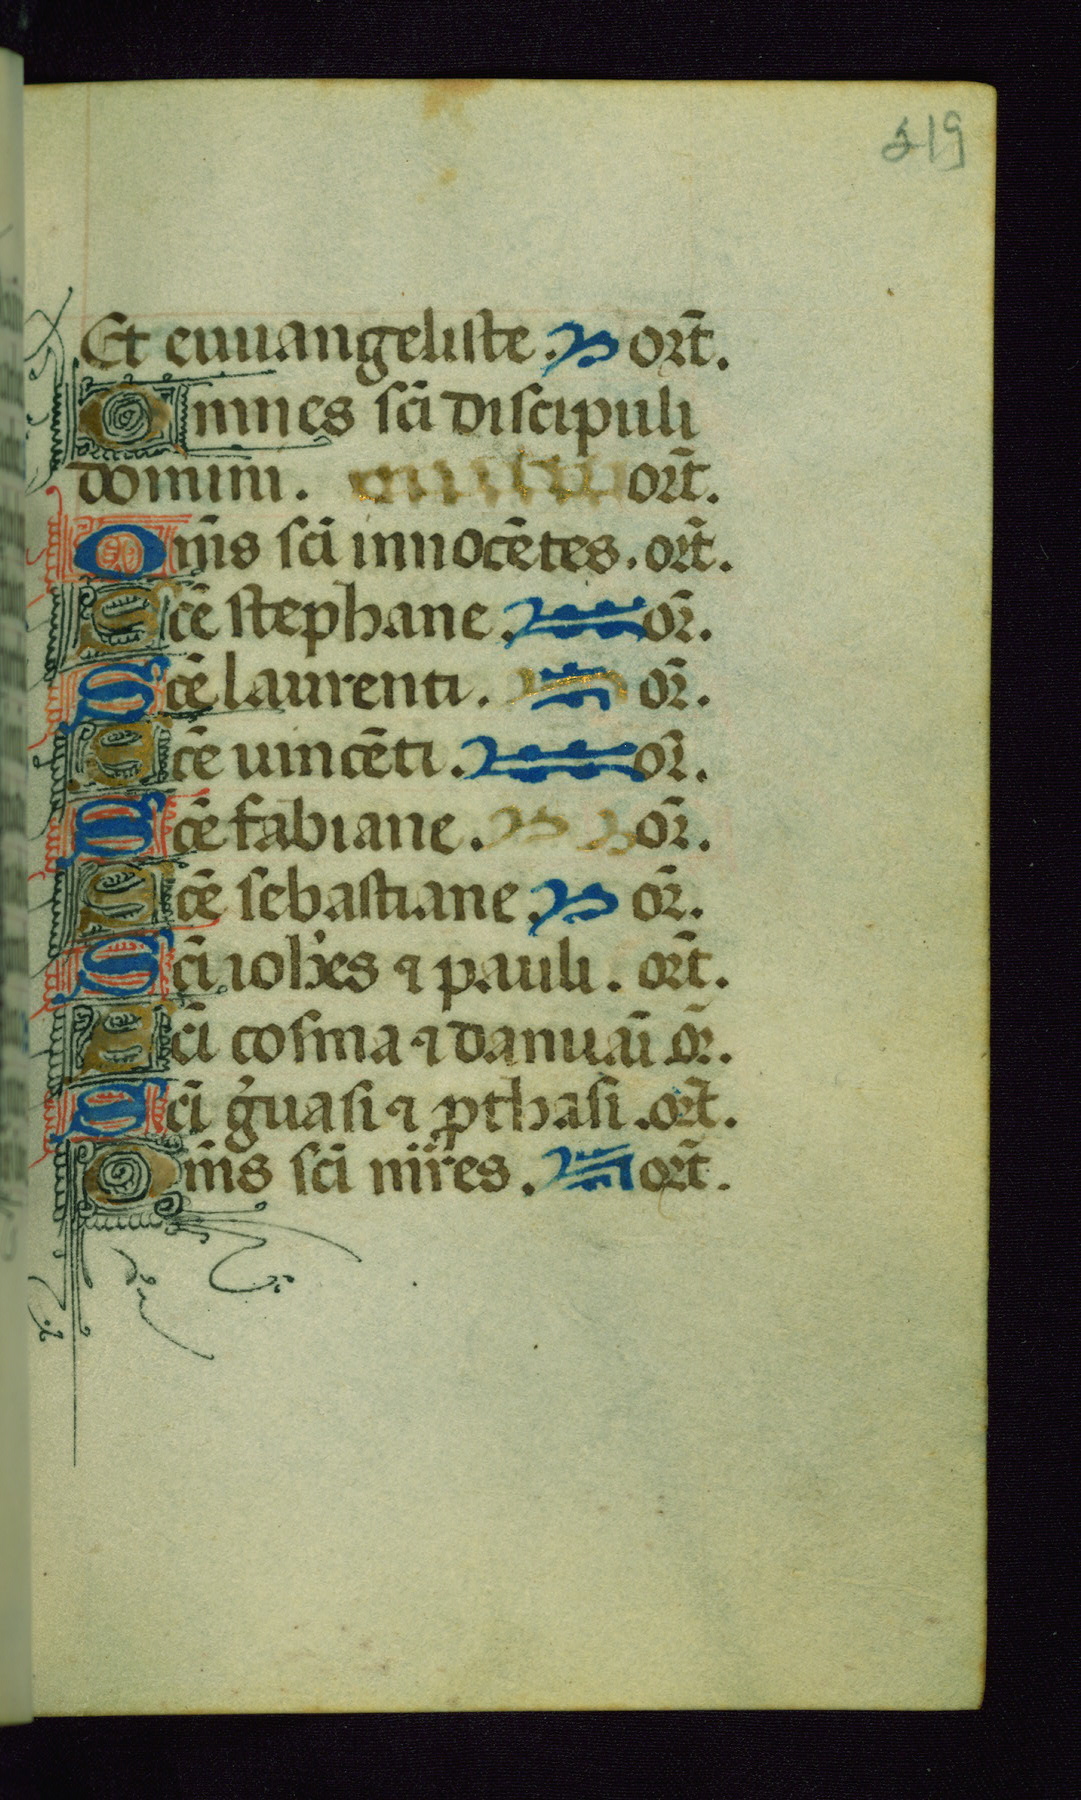 419
Et euuangeliste. ort̄.
Omnes sc̄i discipuli
domini. ort̄.
Om̄s sc̄i innocētes. ort̄.
Sc̄e stephane. or̄.
Sc̄e laurenti. or̄.
Sc̄e uincēti. or̄.
Sc̄e fabiane. or̄.
Sc̄e sebastiane. or̄.
Sc̄i ioh̄es ⁊ pauli. ort̄.
Sc̄i cosma ⁊ damiaī or̄.
Sc̄i g̉uasi ⁊ ꝓthasi. ort̄.
Om̄s sc̄i mr̄es. ort̄.